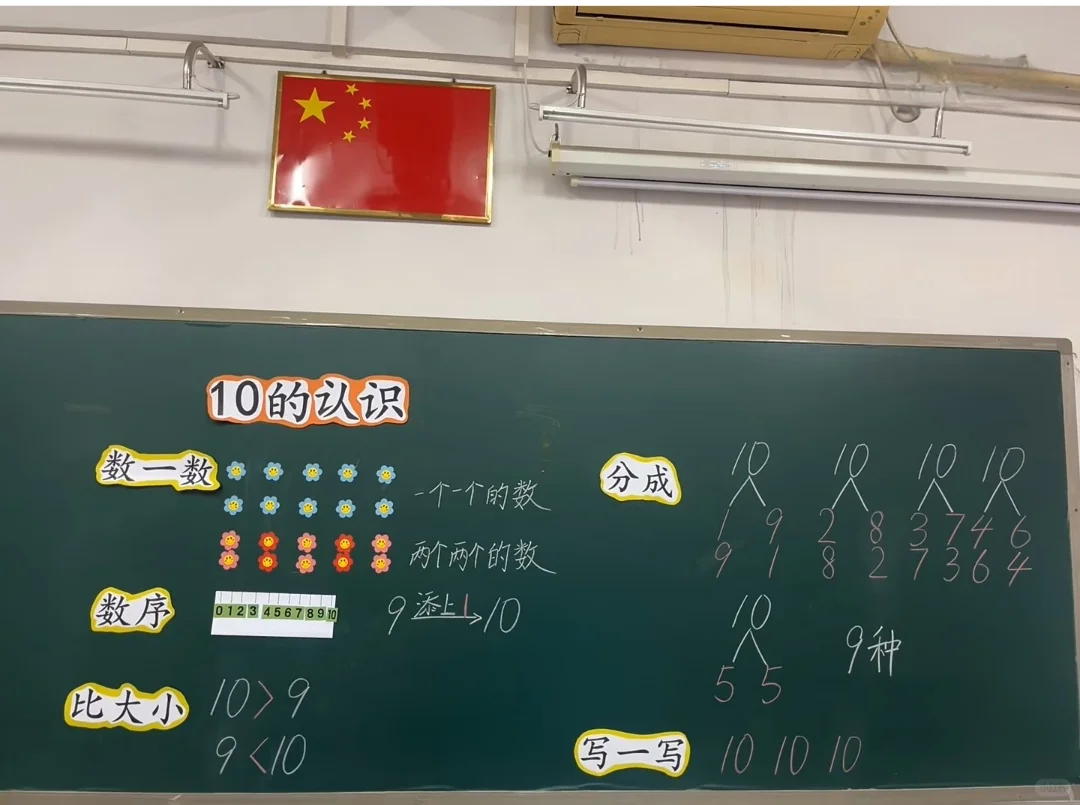 10的认识
数一数
一个一个的数
两个两个的数
数序
0 1 2 3 4 5 6 7 8 9 10
9 添上1 10
比大小
10>9
9<10
分成
10 10 10 10
1 9 2 8 3 7 4 6
9 1 8 2 7 3 6 4
10
5 5
9种
写一写
10 10 10